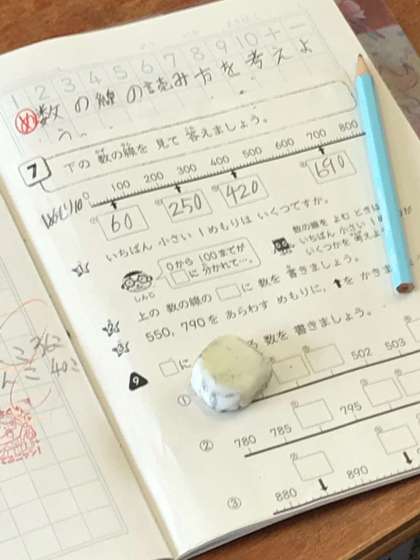 1 2 3 4 5 6 7 8 9 10 + −
め 数の線の読み方を考えよ
う。
7 下の 数の線を 見て 答えましょう。
0 100 200 300 400 500 600 700 800
60 250 420 690
いちばん 小さい 1めもりは いくつですか。
0から 100までが
□に 分かれて…。
しんじ
数の線を よむ ときは
いちばん 小さい 1め
いくつかを 考えよ
上の 数の線の □に 数を 書きましょう。
550, 790を あらわす めもりに, ↑を かきま
9 □に る 数を 書きましょう。
① 502 503
② 780 785 795
③ 880 890